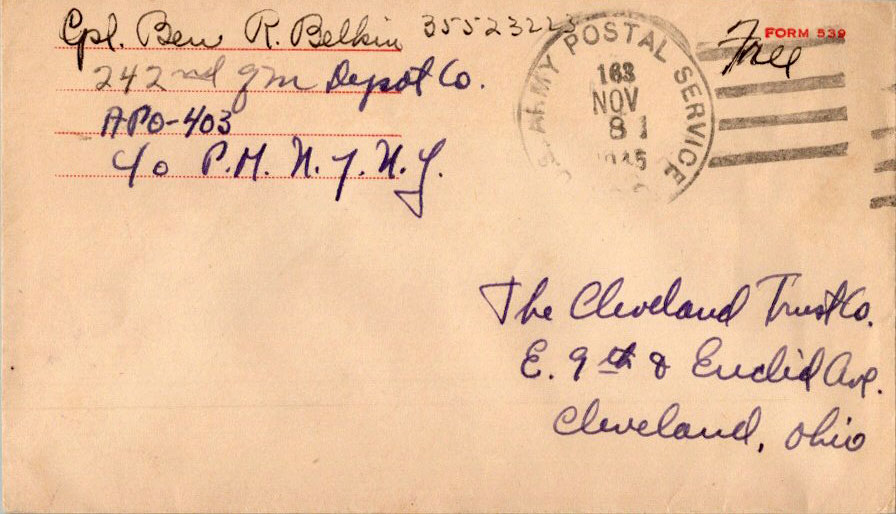 Cpl. Ben R. Belkin 35523225
242nd qm Depot Co.
APO-403
c/o P.M. N.Y. N.Y.
U.S. ARMY POSTAL SERVICE
163
NOV
8 1
1945
FORM 539
Free
The Cleveland Trust Co.
E. 9th & Euclid Ave.
Cleveland, Ohio